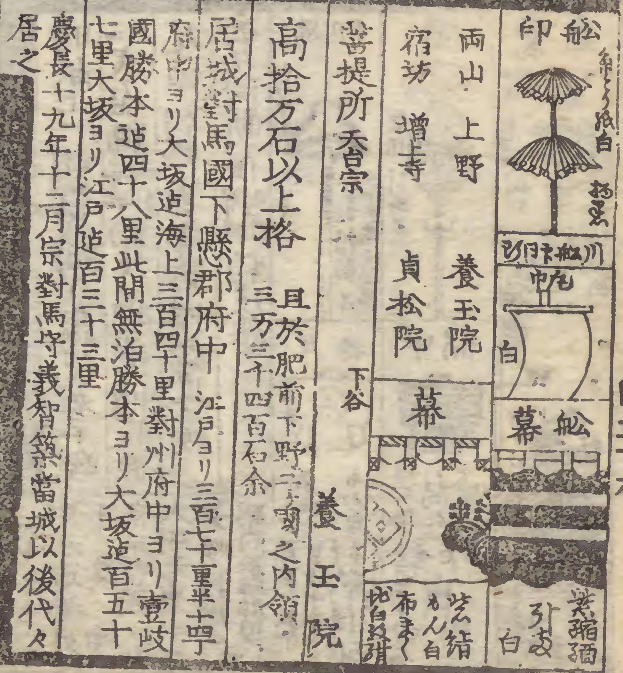 舩印
糸より紙白
川舩印
白
舩幕
紫縮緬
引両
白
両山 上野 養玉院
宿坊 増上寺 貞松院
幕
紫絹
もん白
布まく
地白
菩提所 天台宗 下谷 養玉院
高拾万石以上格 且於肥前下野二ヶ國之内領
三万三千四百石余
居城對馬國下懸郡府中 江戸ヨリ三百七十里半十四丁
府中ヨリ大坂迠海上三百四十里對州府中ヨリ壹岐
國勝本迠四十八里此間無泊勝本ヨリ大坂迠百五十
七里大坂ヨリ江戸迠百三十三里
慶長十九年十二月宗對馬守義智築當城以後代々
居之